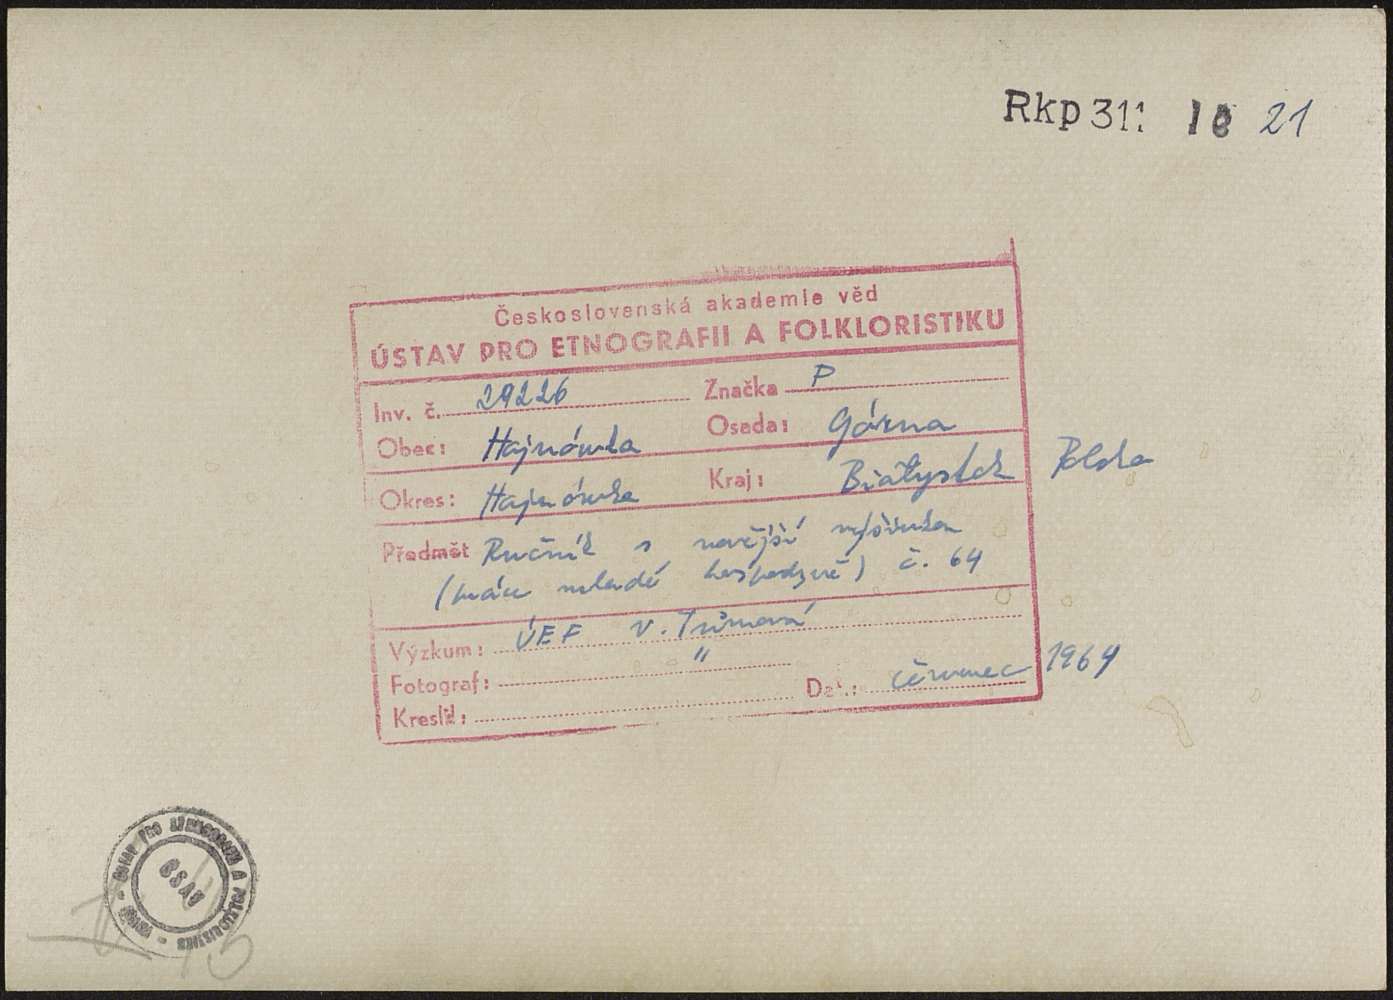 Rkp 311 10 21
Československá akademie věd
ÚSTAV PRO ETNOGRAFII A FOLKLORISTIKU
Inv. č. 29226 Značka P
Obec: Hajnówka Osada: Górna
Okres: Hajnówka Kraj: Białystok Polsko
Předmět Ručník s novější výšivkou
(práce mladé hospodyně) č. 64
Výzkum: ÚEF V. Tůmová
Fotograf: "
Kreslil: Dat.: červenec 1964
ÚSTAV PRO ETNOGRAFII A FOLKLORISTIKU - PRAHA -
ČSAV